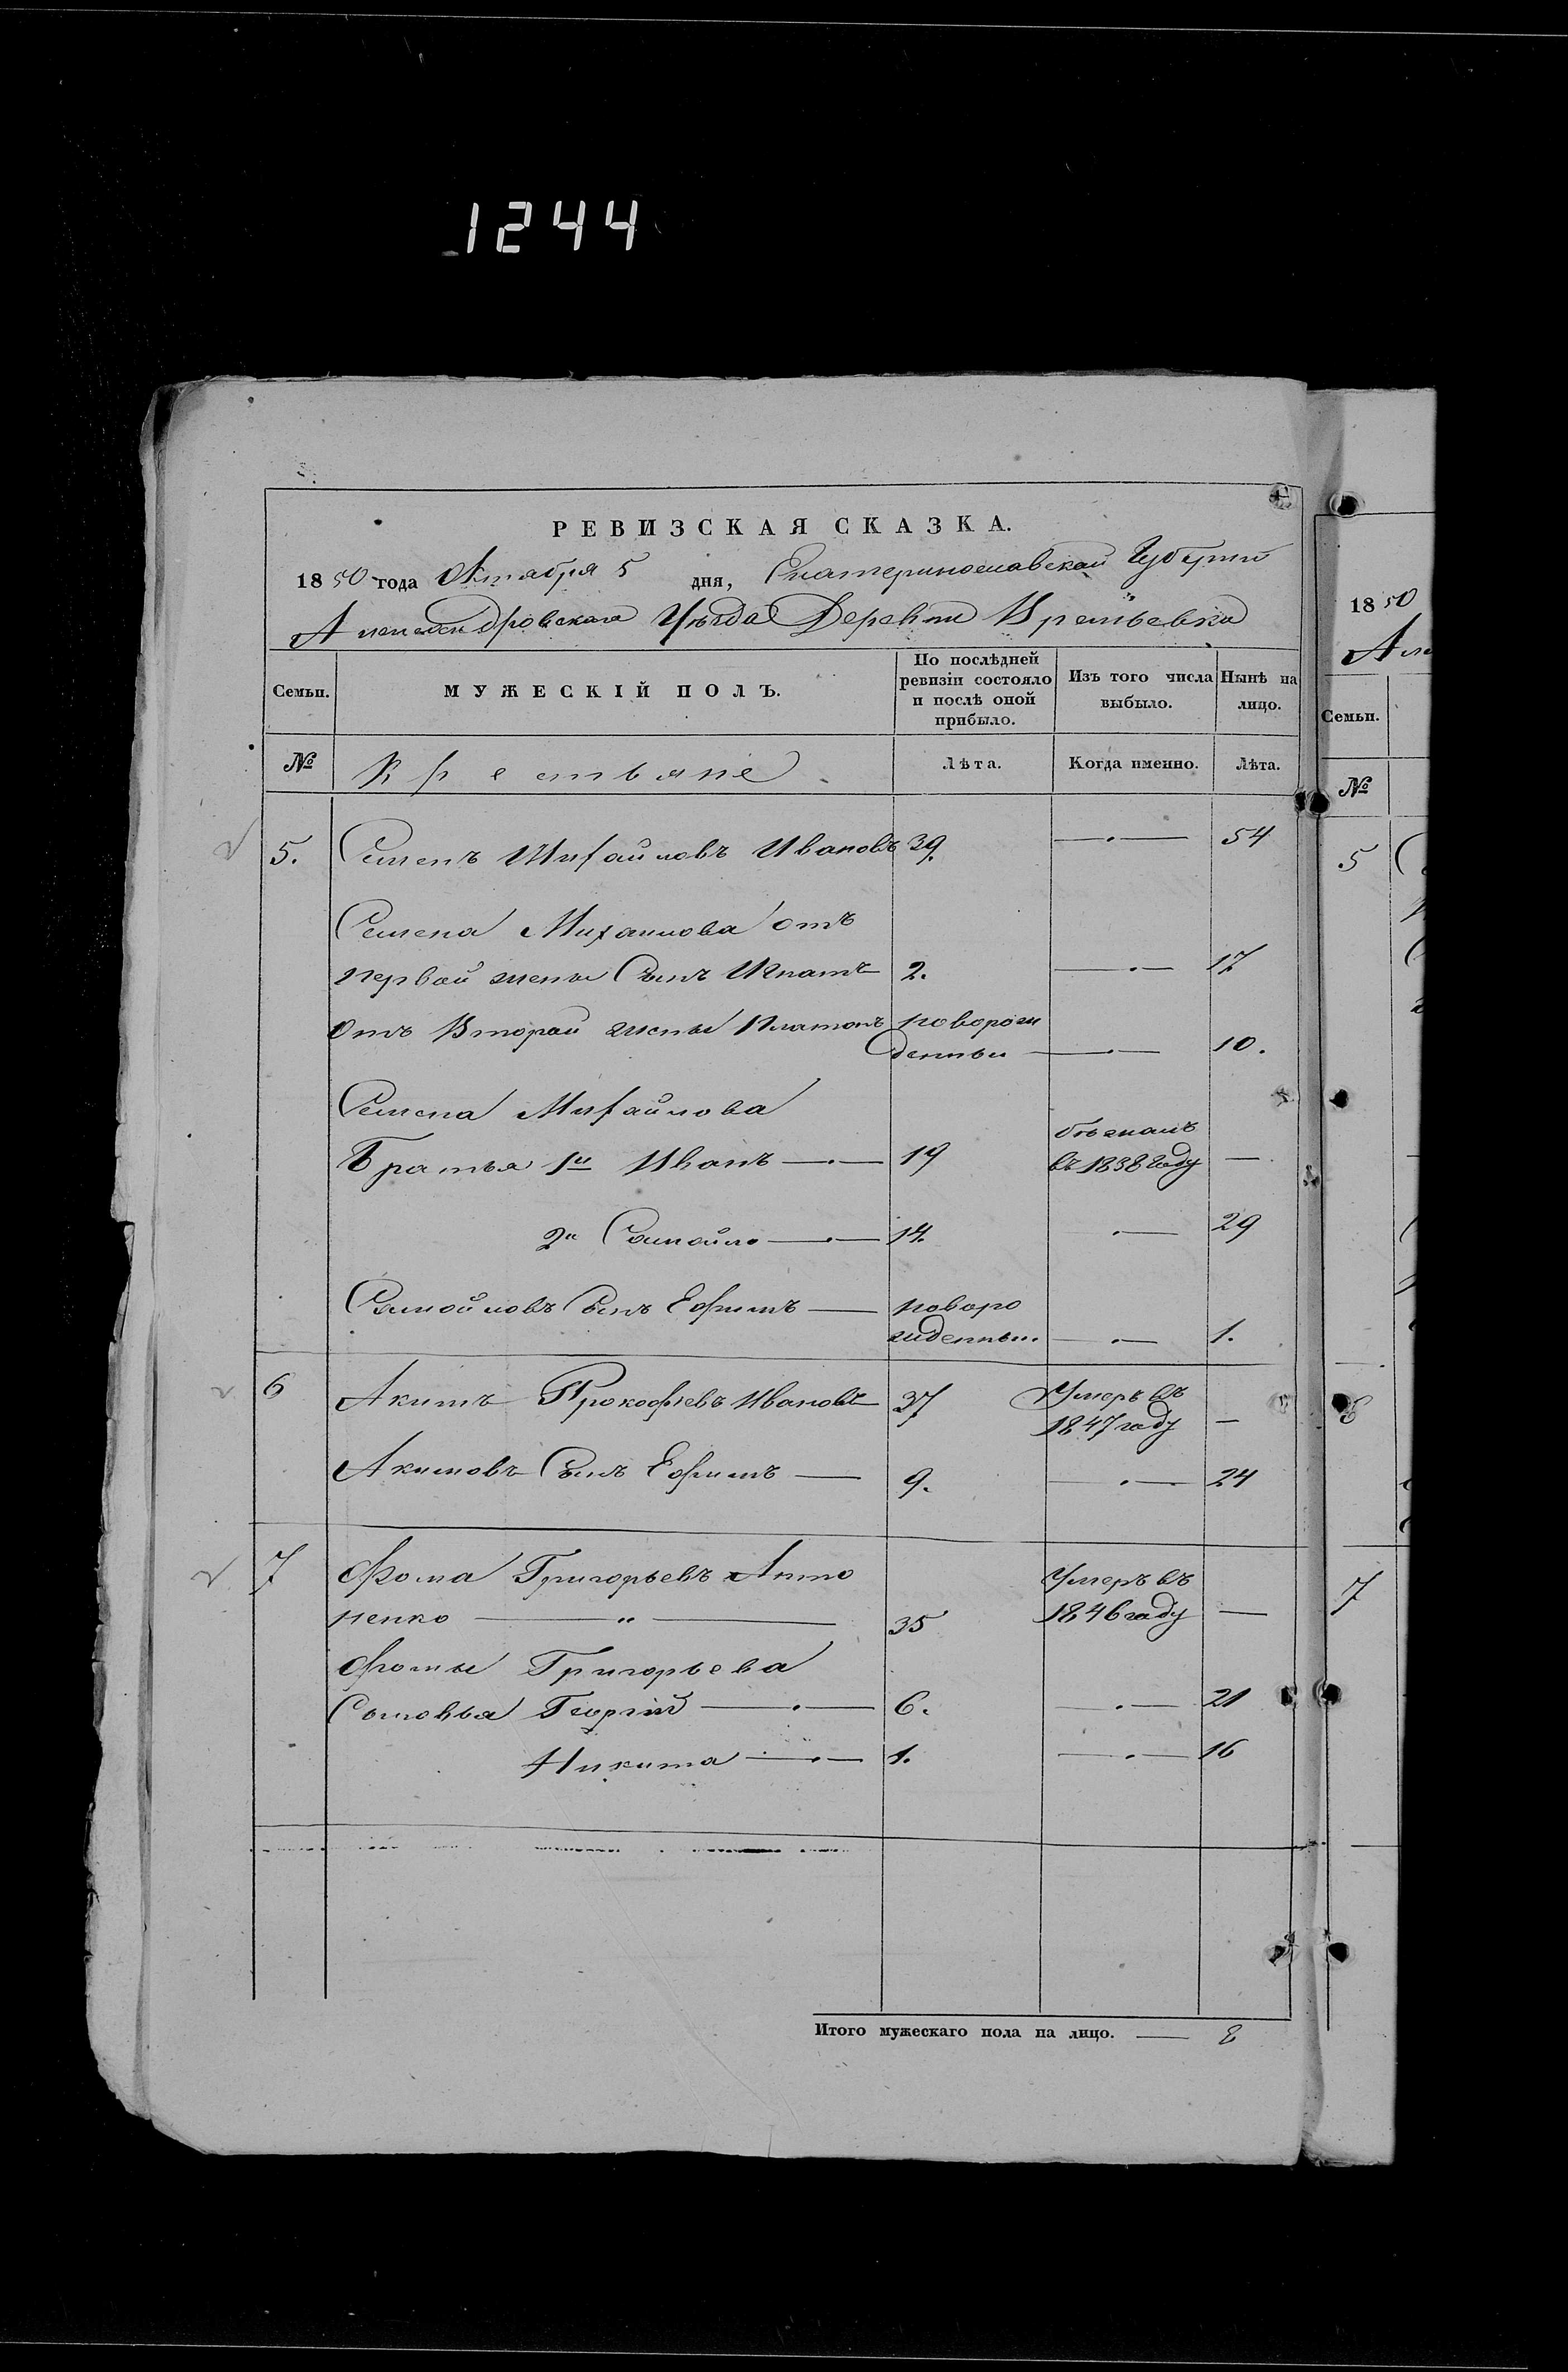 1244
РЕВИЗСКАЯ СКАЗКА.
1850 года Октября 5 дня, Екатеринославской Губернии
Александровскаго Уѣзда Деревни Времьевки
Семьи.
МУЖЕСКІЙ ПОЛЪ.
По послѣдней ревизіи состояло и послѣ оной прибыло.
Изъ того числа выбыло.
Нынѣ на лицо.
№ Крестьяне Лѣта. Когда именно. Лѣта.
5. Семенъ Михайловъ Ивановъ 39. — 54
Семена Михаилова отъ
первой жены Сынъ Игнатъ 2. — 17
Отъ Второй жены Платонъ новорож
денный — 10.
Семена Михайлова
бѣжалъ
Братья 1й Иванъ — 19 въ 1838 году —
2й Самойло — 14. — 29
Самойловъ Сынъ Ефимъ — новоро
жденный. — 1.
6 Акимъ Прокофьевъ Ивановъ 37 Умеръ въ
1847 году —
Акимовъ Сынъ Ефимъ — 9. — 24
7 Фома Григорьевъ Анто Умеръ въ
ненко — „ — 35 1846 году —
Фомы Григорьева
Сыновья Георгій — 6. — 21
Никита — 1. — 16
Итого мужескаго пола на лицо. — 8
1850
Але
Семьи.
№
5
6
7